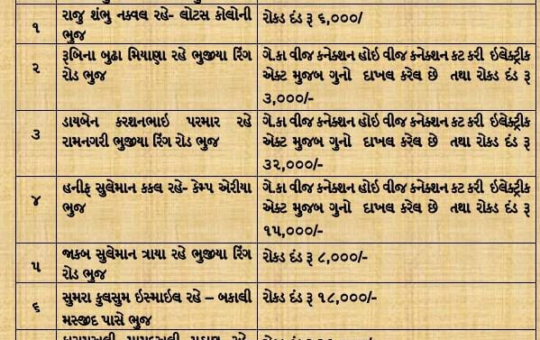 ૧
રાજુ શંભુ નકવલ રહે- લોટસ કોલોની
ભુજ
રોકડ દંડ રૂ ૬,૦૦૦/
૨
રૂબિના બુઢા મિયાણા રહે ભુજીયા રિંગ
રોડ ભુજ
ગે.કા વીજ કનેક્શન હોઇ વીજ કનેક્શન કટ કરી ઇલેક્ટ્રીક
એક્ટ મુજબ ગુનો દાખલ કરેલ છે તથા રોકડ દંડ રૂ
૩,૦૦૦/-
૩
ડાયબેન કરશનભાઇ પરમાર રહે
રામનગરી ભુજીયા રિંગ રોડ ભુજ
ગે.કા વીજ કનેક્શન હોઇ વીજ કનેક્શન કટ કરી ઇલેક્ટ્રીક
એક્ટ મુજબ ગુનો દાખલ કરેલ છે તથા રોકડ દંડ રૂ
૩૨,૦૦૦/-
૪
હનીફ સુલેમાન કકલ રહે- કેમ્પ એરીયા
ભુજ
ગે.કા વીજ કનેક્શન હોઇ વીજ કનેક્શન કટ કરી ઇલેક્ટ્રીક
એક્ટ મુજબ ગુનો દાખલ કરેલ છે તથા રોકડ દંડ રૂ
૧૫,૦૦૦/-
૫
જાકબ સુલેમાન ત્રાયા રહે ભુજીયા રિંગ
રોડ ભુજ
રોકડ દંડ રૂ ૮,૦૦૦/-
૬
સુમરા કુલસુમ ઇસ્માઇલ રહે – બકાલી
મસ્જીદ પાસે ભુજ
રોકડ દંડ રૂ ૧૮,૦૦૦/-